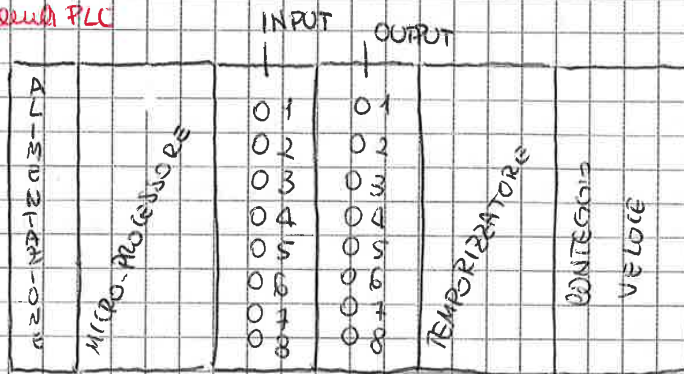 PLC
INPUT
OUTPUT
ALIMENTAZIONE
MICRO-PROCESSORE
01
02
03
04
05
06
07
08
01
02
03
04
05
06
07
08
TEMPORIZZATORE
CONTEGGIO
VELOCE